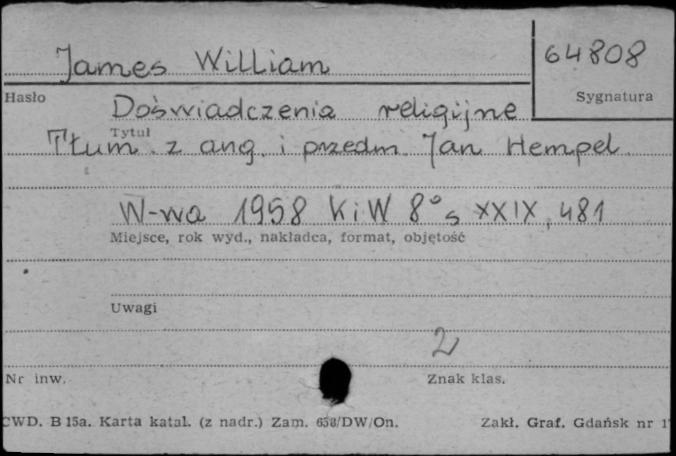 James William
64808
Hasło
Sygnatura
Doświadczenia religijne
Tytuł
Tłum. z ang. i przedm. Jan Hempel
W-wa 1958 KiW 8° s XXIX, 481
Miejsce, rok wyd., nakładca, format, objętość
Uwagi
2
Nr inw.
Znak klas.
CWD. B 15a. Karta katal. (z nadr.) Zam. 658/DW/On.
Zakł. Graf. Gdańsk nr 1